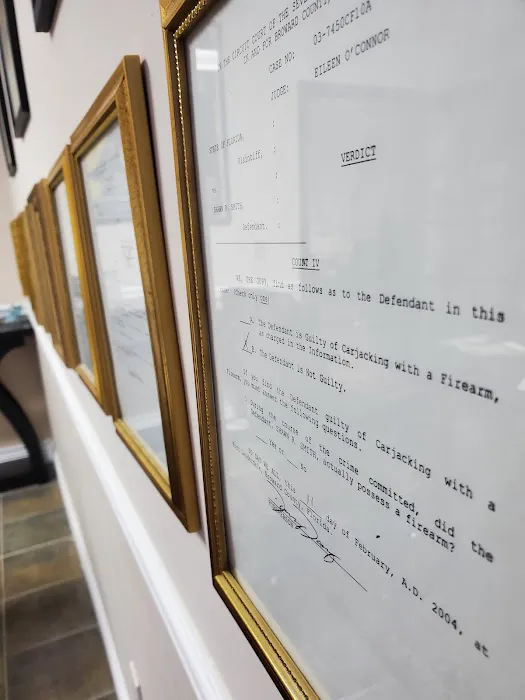 IN THE CIRCUIT COURT OF THE SEVE
IN AND FOR BROWARD COUNTY,
CASE NO: 03-7450CF10A
JUDGE: EILEEN O'CONNOR
STATE OF FLORIDA,
Plaintiff,
vs.
Defendant.
VERDICT
COUNT IV
WE, THE JURY, find as follows as to the Defendant in this
A. The Defendant is Guilty of Carjacking with a Firearm,
as charged in the Information.
B. The Defendant is Not Guilty.
If you find the Defendant guilty of Carjacking with a
Firearm, you must answer the following questions.
During the course of the crime committed, did the
Defendant, SHAWN R. SMITH, actually possess a firearm?
Yes or No
SO SAY WE ALL this 11 day of February, A.D. 2004, at
Broward County, Florida.